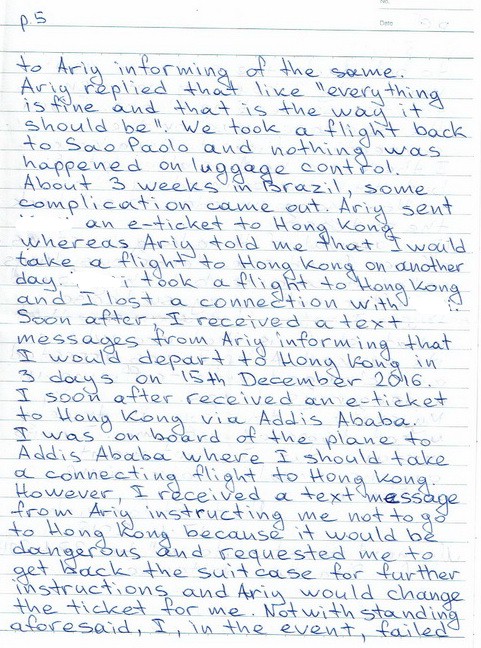 p.5
No.
Date
to Ariy informing of the same.
Ariy replied that like "everything
is fine and that is the way it
should be". We took a flight back
to Sao Paolo and nothing was
happened on luggage control.
About 3 weeks in Brazil, some
complication came out. Ariy sent
an e-ticket to Hong Kong
whereas Ariy told me that I would
take a flight to Hong Kong on another
day. i took a flight to Hong Kong
and I lost a connection with
Soon after, I received a text
messages from Ariy informing that
I would depart to Hong Kong in
3 days on 15th December 2016.
I soon after received an e-ticket
to Hong Kong via Addis Ababa.
I was on board of the plane to
Addis Ababa where I should take
a connecting flight to Hong Kong.
However, I received a text message
from Ariy instructing me not to go
to Hong Kong because it would be
dangerous and requested me to
get back the suitcase for further
instructions and Ariy would change
the ticket for me. Notwithstanding
aforesaid, I, in the event, failed